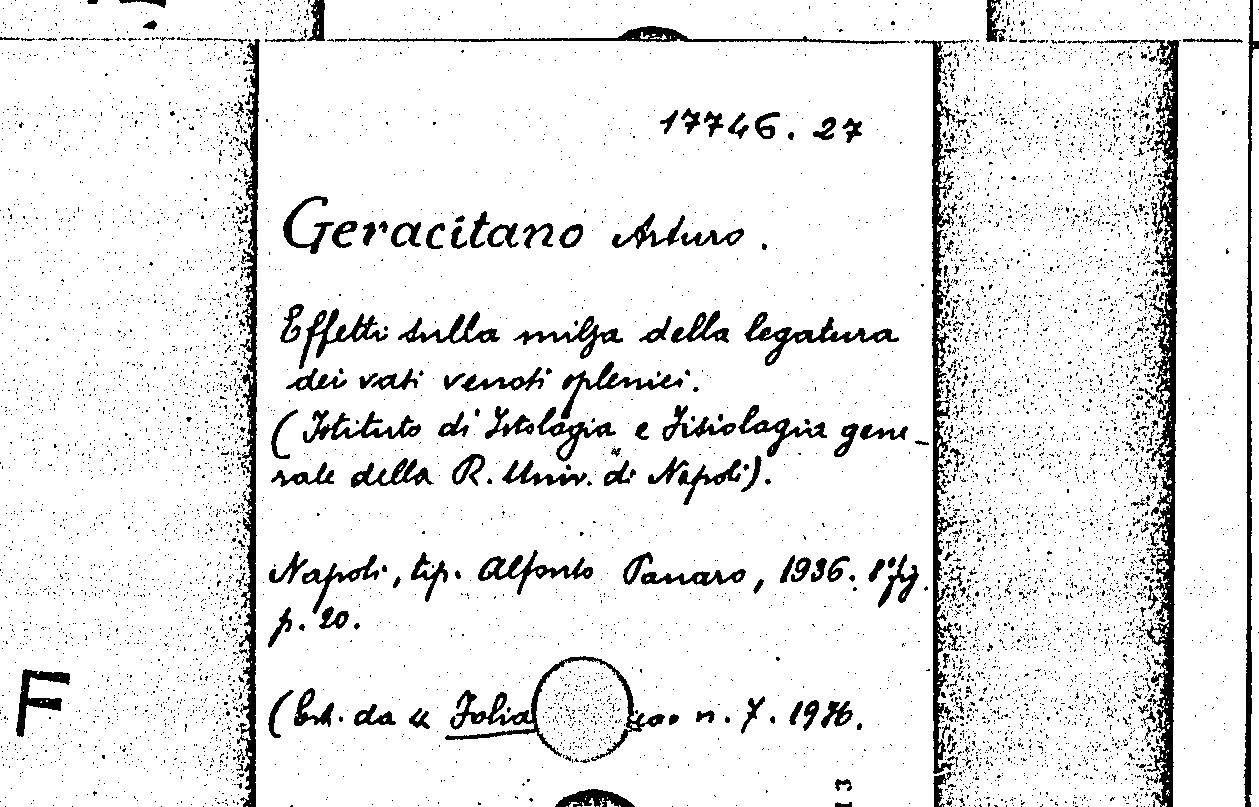 17746.27
Geracitano Arturo.
Effetti sulla milza della legatura
dei vasi venosi splenici.
(Istituto di Istologia e Fisiologia gene-
rale della R. Univ. di Napoli).
Napoli, tip. Alfonso Panaro, 1936. 8° fig.
p. 20.
F
(Est. da « Folia n. 7. 1936.
13